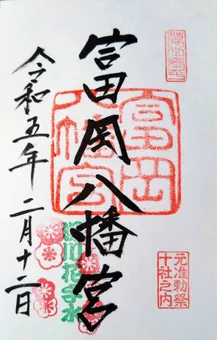 富岡八幡宮
令和五年二月十二日
富岡八幡宮
元准勅祭
十社之内
花手水